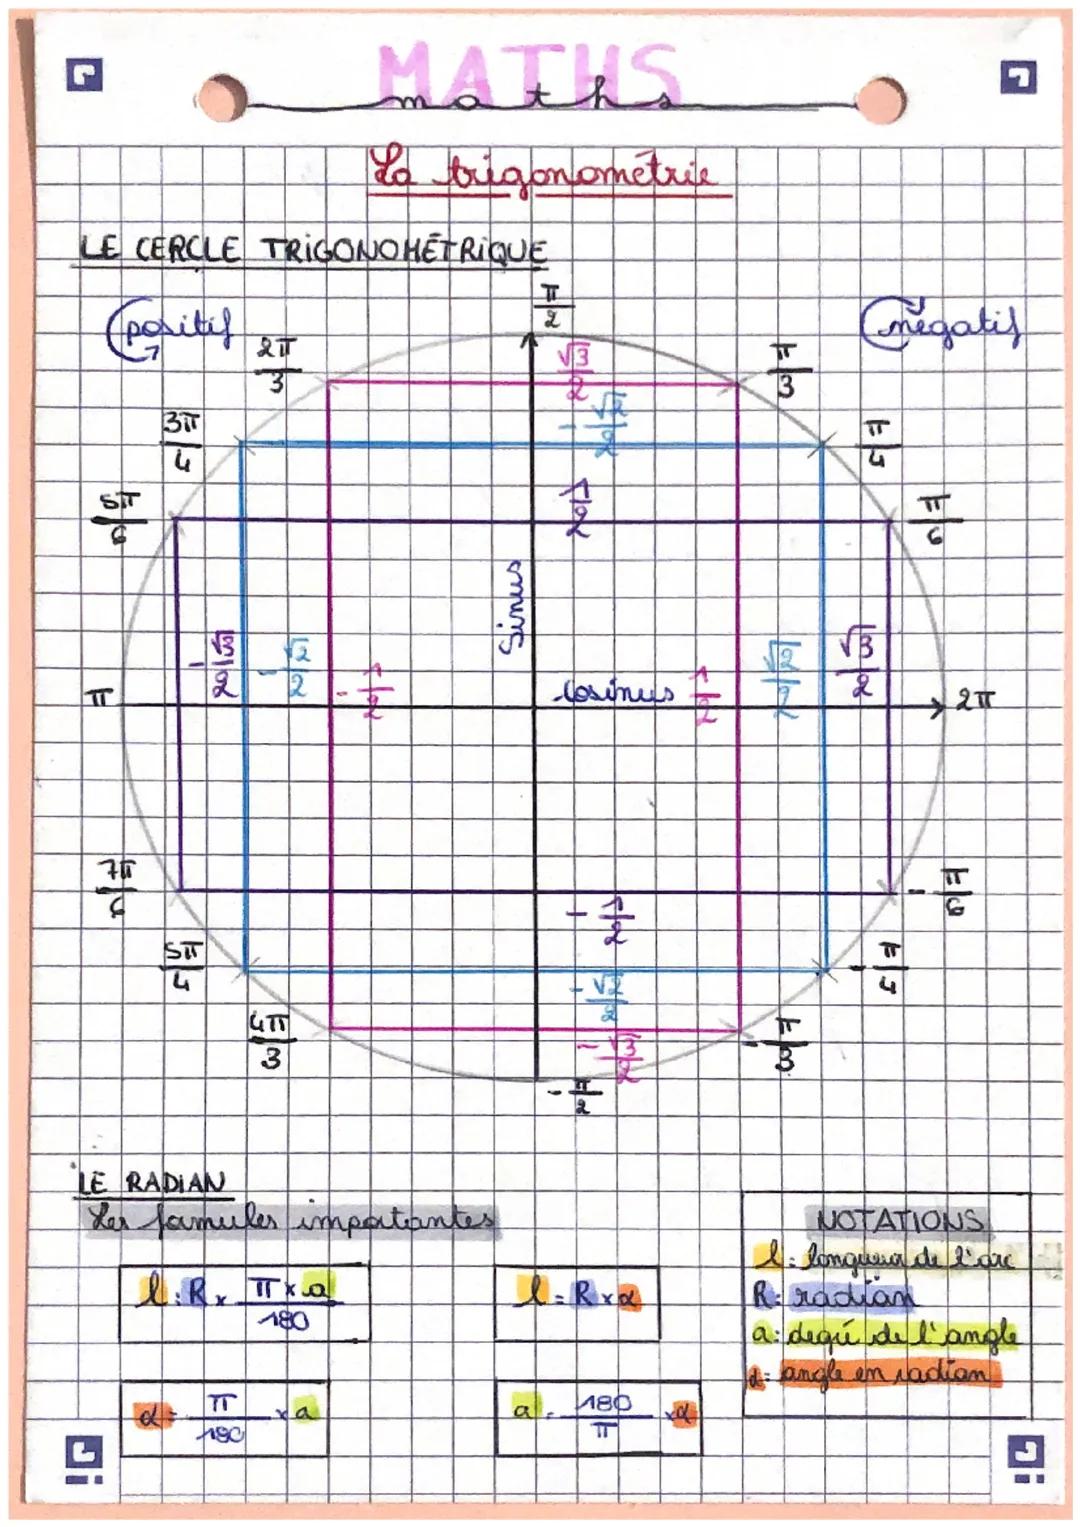 MATHS
maths
La trigonométrie
LE CERCLE TRIGONOMÉTRIQUE
positif
négatif
π/2
2π/3
√3/2
π/3
3π/4
-√2/2
π/4
5π/6
1/2
π/6
Sinus
-√3/2 -√2/2 -1/2
1/2 √2/2 √3/2
π
Cosinus
2π
7π/6
-1/2
-π/6
5π/4
-√2/2
-π/4
4π/3
-√3/2
-π/3
-π/2
LE RADIAN
Les formules importantes
l = R × π × a / 180
l = R × α
α = π/180 × a
a = 180/π × α
NOTATIONS
l: longueur de l'arc
R: radian
a: degré de l'angle
α: angle en radian